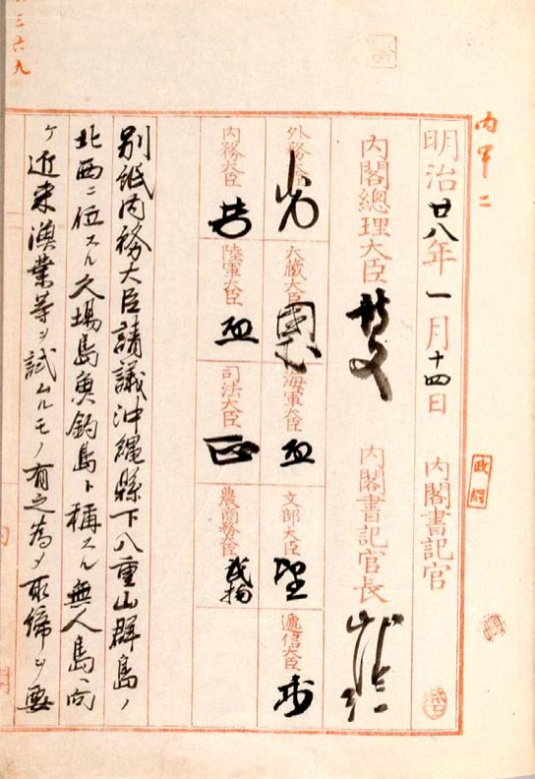 内甲二
明治廿八年一月十四日 内閣書記官
政綱
内閣總理大臣 内閣書記官長
外務大臣 大藏大臣 海軍大臣 文部大臣 遞信大臣
内務大臣 陸軍大臣 司法大臣 農商務大臣
別紙内務大臣請議沖縄縣下八重山群島ノ
北西ニ位スル久場島魚釣島ト稱スル無人島ヘ向
ケ近来漁業等ヲ試ムルモノ有之為メ取締ヲ要
三六九